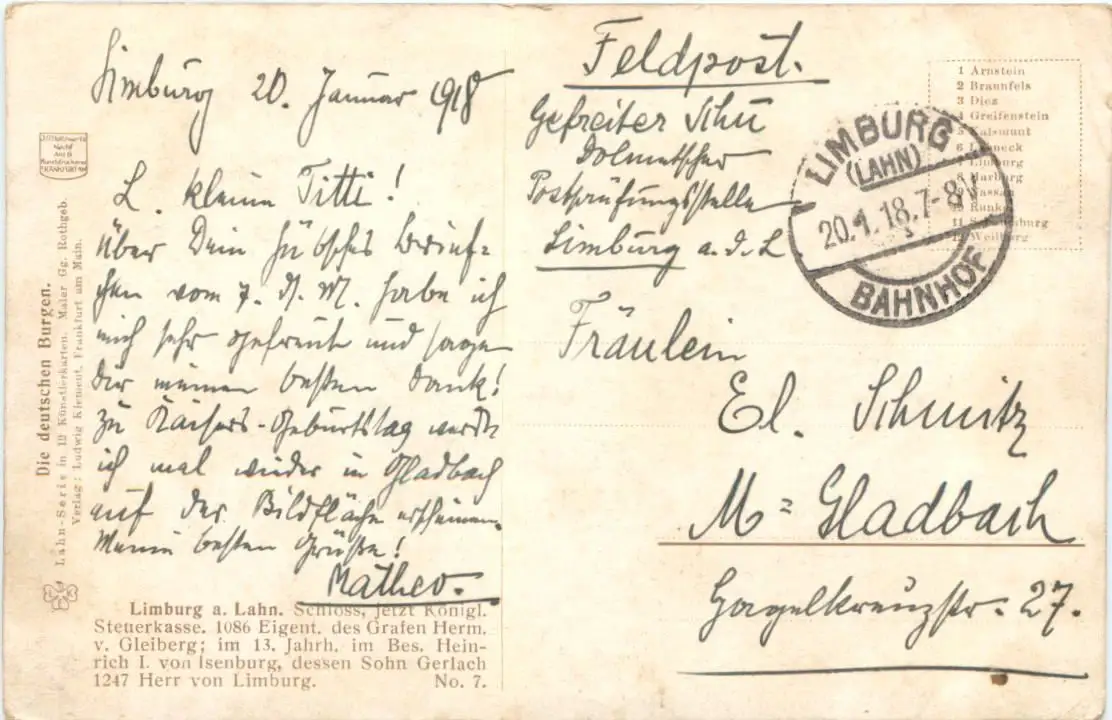 Limburg 20. Januar 1918
L. kleine Titti!
Über Dein hübsches Brief-
chen vom 7. d. M. habe ich
mich sehr gefreut und sage
Dir meinen besten Dank!
Zu Kaisers-Geburtstag werde
ich mal wieder in Gladbach
auf der Bildfläche erscheinen.
Meine besten Grüße!
Matheo.
Limburg a. Lahn. Schloss, jetzt Königl.
Steuerkasse. 1086 Eigent. des Grafen Herm.
v. Gleiberg; im 13. Jahrh. im Bes. Hein-
rich I. von Isenburg, dessen Sohn Gerlach
1247 Herr von Limburg. No. 7.
Die deutschen Burgen.
Lahn-Serie in 12 Künstlerkarten. Maler Gg. Rothgeb.
Verlag: Ludwig Klement, Frankfurt am Main.
Feldpost.
Gefreiter Schu
Dolmetscher
Postprüfungsstelle
Limburg a. d. L
Fräulein
El. Schmitz
M=Gladbach
Gagelkreuzstr. 27.
LIMBURG
(LAHN)
20.1.18.7-8V
BAHNHOF
1 Arnstein
2 Braunfels
3 Diez
4 Greifenstein
5 Kalsmunt
6
7 Limburg
8 Marburg
9 Nassau
10 Runkel
11
12 Weilburg